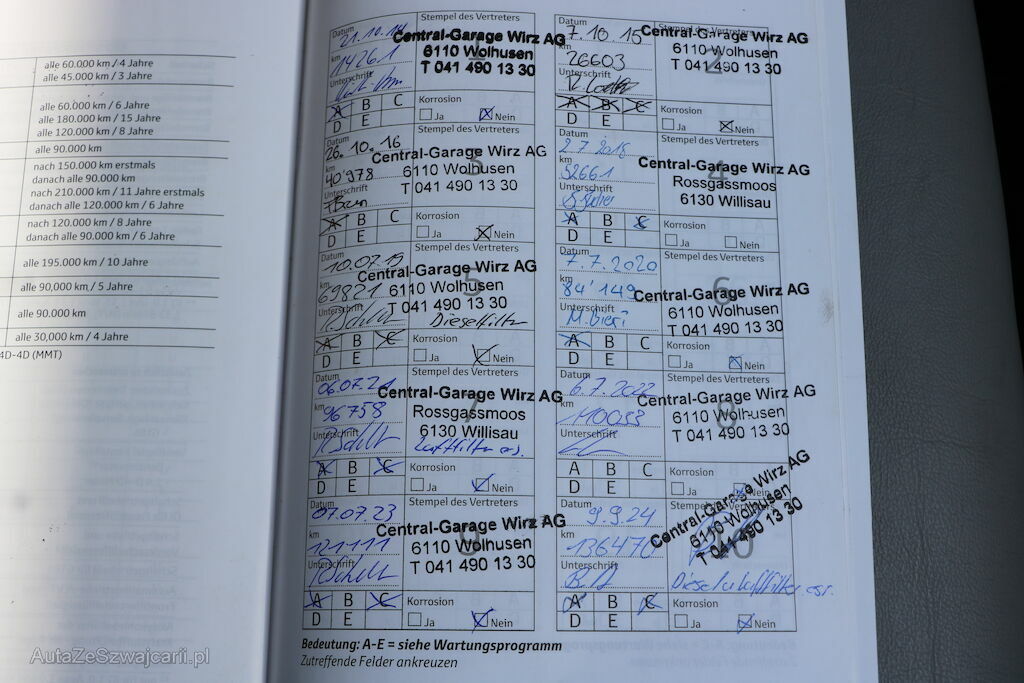 alle 60.000 km / 4 Jahre
alle 45.000 km / 3 Jahre
alle 60.000 km / 6 Jahre
alle 180.000 km / 15 Jahre
alle 120.000 km / 8 Jahre
alle 90.000 km
nach 150.000 km erstmals
danach alle 90.000 km
nach 210.000 km / 11 Jahre erstmals
danach alle 120.000 km / 6 Jahre
nach 120.000 km / 8 Jahre
danach alle 90.000 km / 6 Jahre
alle 195.000 km / 10 Jahre
alle 90,000 km / 5 Jahre
alle 90.000 km
alle 30,000 km / 4 Jahre
4D-4D (MMT)
Datum
21.10.14
Stempel des Vertreters
Central-Garage Wirz AG
6110 Wolhusen
T 041 490 13 30
km
14261
Unterschrift
A B C
D E
Korrosion
Ja Nein
Datum
7.10.15
Stempel des Vertreters
Central-Garage Wirz AG
6110 Wolhusen
T 041 490 13 30
2
km
26603
Unterschrift
A B C
D E
Korrosion
Ja Nein
Datum
26.10.16
Stempel des Vertreters
Central-Garage Wirz AG
6110 Wolhusen
T 041 490 13 30
3
km
40'978
Unterschrift
A B C
D E
Korrosion
Ja Nein
Datum
2.7.2018
Stempel des Vertreters
Central-Garage Wirz AG
Rossgassmoos
6130 Willisau
4
km
52661
Unterschrift
A B C
D E
Korrosion
Ja Nein
Datum
10.07.19
Stempel des Vertreters
Central-Garage Wirz AG
6110 Wolhusen
T 041 490 13 30
5
km
69821
Unterschrift
Dieselfilter
A B C
D E
Korrosion
Ja Nein
Datum
7.7.2020
Stempel des Vertreters
Central-Garage Wirz AG
6110 Wolhusen
T 041 490 13 30
6
km
84'149
Unterschrift
M. Bieri
A B C
D E
Korrosion
Ja Nein
Datum
06.07.21
Stempel des Vertreters
Central-Garage Wirz AG
Rossgassmoos
6130 Willisau
7
km
96758
Unterschrift
Luftfilter ers.
A B C
D E
Korrosion
Ja Nein
Datum
6.7.2022
Stempel des Vertreters
Central-Garage Wirz AG
6110 Wolhusen
T 041 490 13 30
8
km
110033
Unterschrift
A B C
D E
Korrosion
Ja Nein
Datum
07.07.23
Stempel des Vertreters
Central-Garage Wirz AG
6110 Wolhusen
T 041 490 13 30
9
km
121111
Unterschrift
A B C
D E
Korrosion
Ja Nein
Datum
9.9.24
Stempel des Vertreters
Central-Garage Wirz AG
6110 Wolhusen
T 041 490 13 30
10
km
136470
Unterschrift
A B C
D E
Korrosion
Ja Nein
Bedeutung: A-E = siehe Wartungsprogramm
Zutreffende Felder ankreuzen
AutaZeSzwajcarii.pl